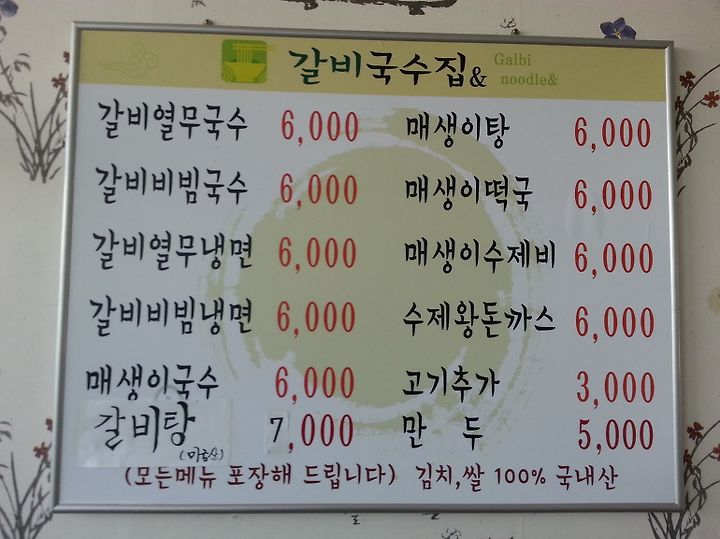 갈비국수집& Galbi noodle&
갈비열무국수 6,000
갈비비빔국수 6,000
갈비열무냉면 6,000
갈비비빔냉면 6,000
매생이국수 6,000
갈비탕 7,000
매생이탕 6,000
매생이떡국 6,000
매생이수제비 6,000
수제왕돈까스 6,000
고기추가 3,000
만두 5,000
(모든메뉴 포장해 드립니다) 김치,쌀 100% 국내산